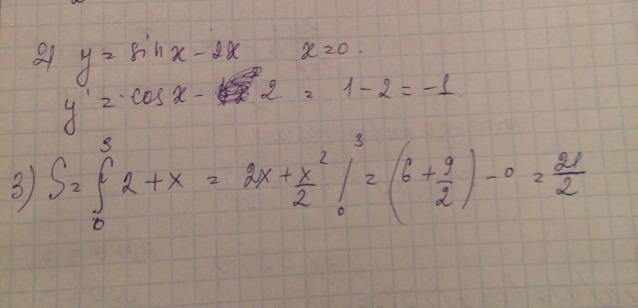 2) y = sin x - 2x x=0.
y' = cos x - 2 = 1 - 2 = -1
3) S = ∫₀³ 2 + x = 2x + x²/2 |₀³ = (6 + 9/2) - 0 = 21/2